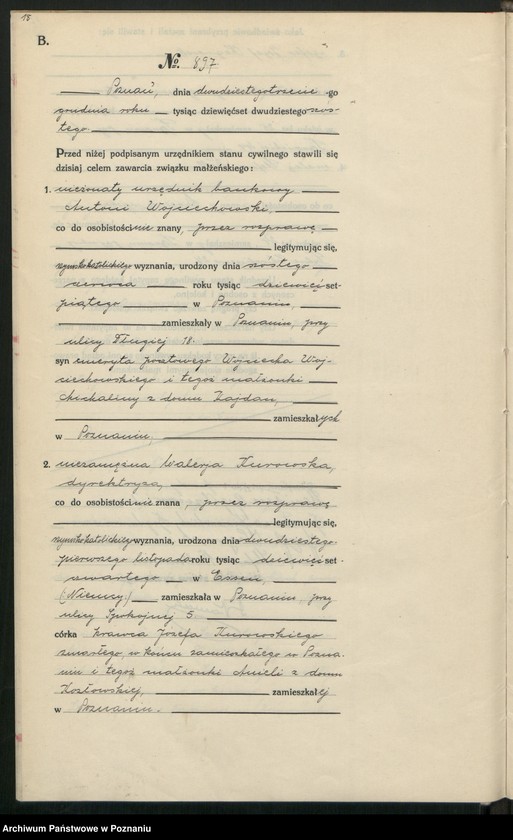 15
B.
No. 897
Poznań, dnia dwudziestegotrzecie-go
grudnia roku tysiąc dziewięćset dwudziestego szós-
tego.
Przed niżej podpisanym urzędnikiem stanu cywilnego stawili się
dzisiaj celem zawarcia związku małżeńskiego:
1. nieżonaty urzędnik bankowy
Antoni Wojciechowski,
co do osobistości nie znany, przez rozprawę
legitymując się,
rzymskokatolickiego wyznania, urodzony dnia szóstego
czerwca roku tysiąc dziewięćset-
piątego w Poznaniu,
zamieszkały w Poznaniu, przy
ulicy Długiej 18.
syn emeryta pocztowego Wojciecha Woj-
ciechowskiego i tegoż małżonki
Michaliny z domu Zajdan,
zamieszkałych
w Poznaniu,
2. niezamężna Walerja Kurowska,
dyrektryza,
co do osobistości nie znana, przez rozprawę
legitymując się,
rzymskokatolickiego wyznania, urodzona dnia dwudziestego-
pierwszego listopada roku tysiąc dziewięćset-
czwartego w Essen,
(Niemcy) zamieszkała w Poznaniu, przy
ulicy Spokojnej 5
córka krawca Józefa Kurowskiego
zmarłego, w końcu zamieszkałego w Pozna-
niu i tegoż małżonki Anieli z domu
Kozłowskiej, zamieszkałej
w Poznaniu.
Archiwum Państwowe w Poznaniu